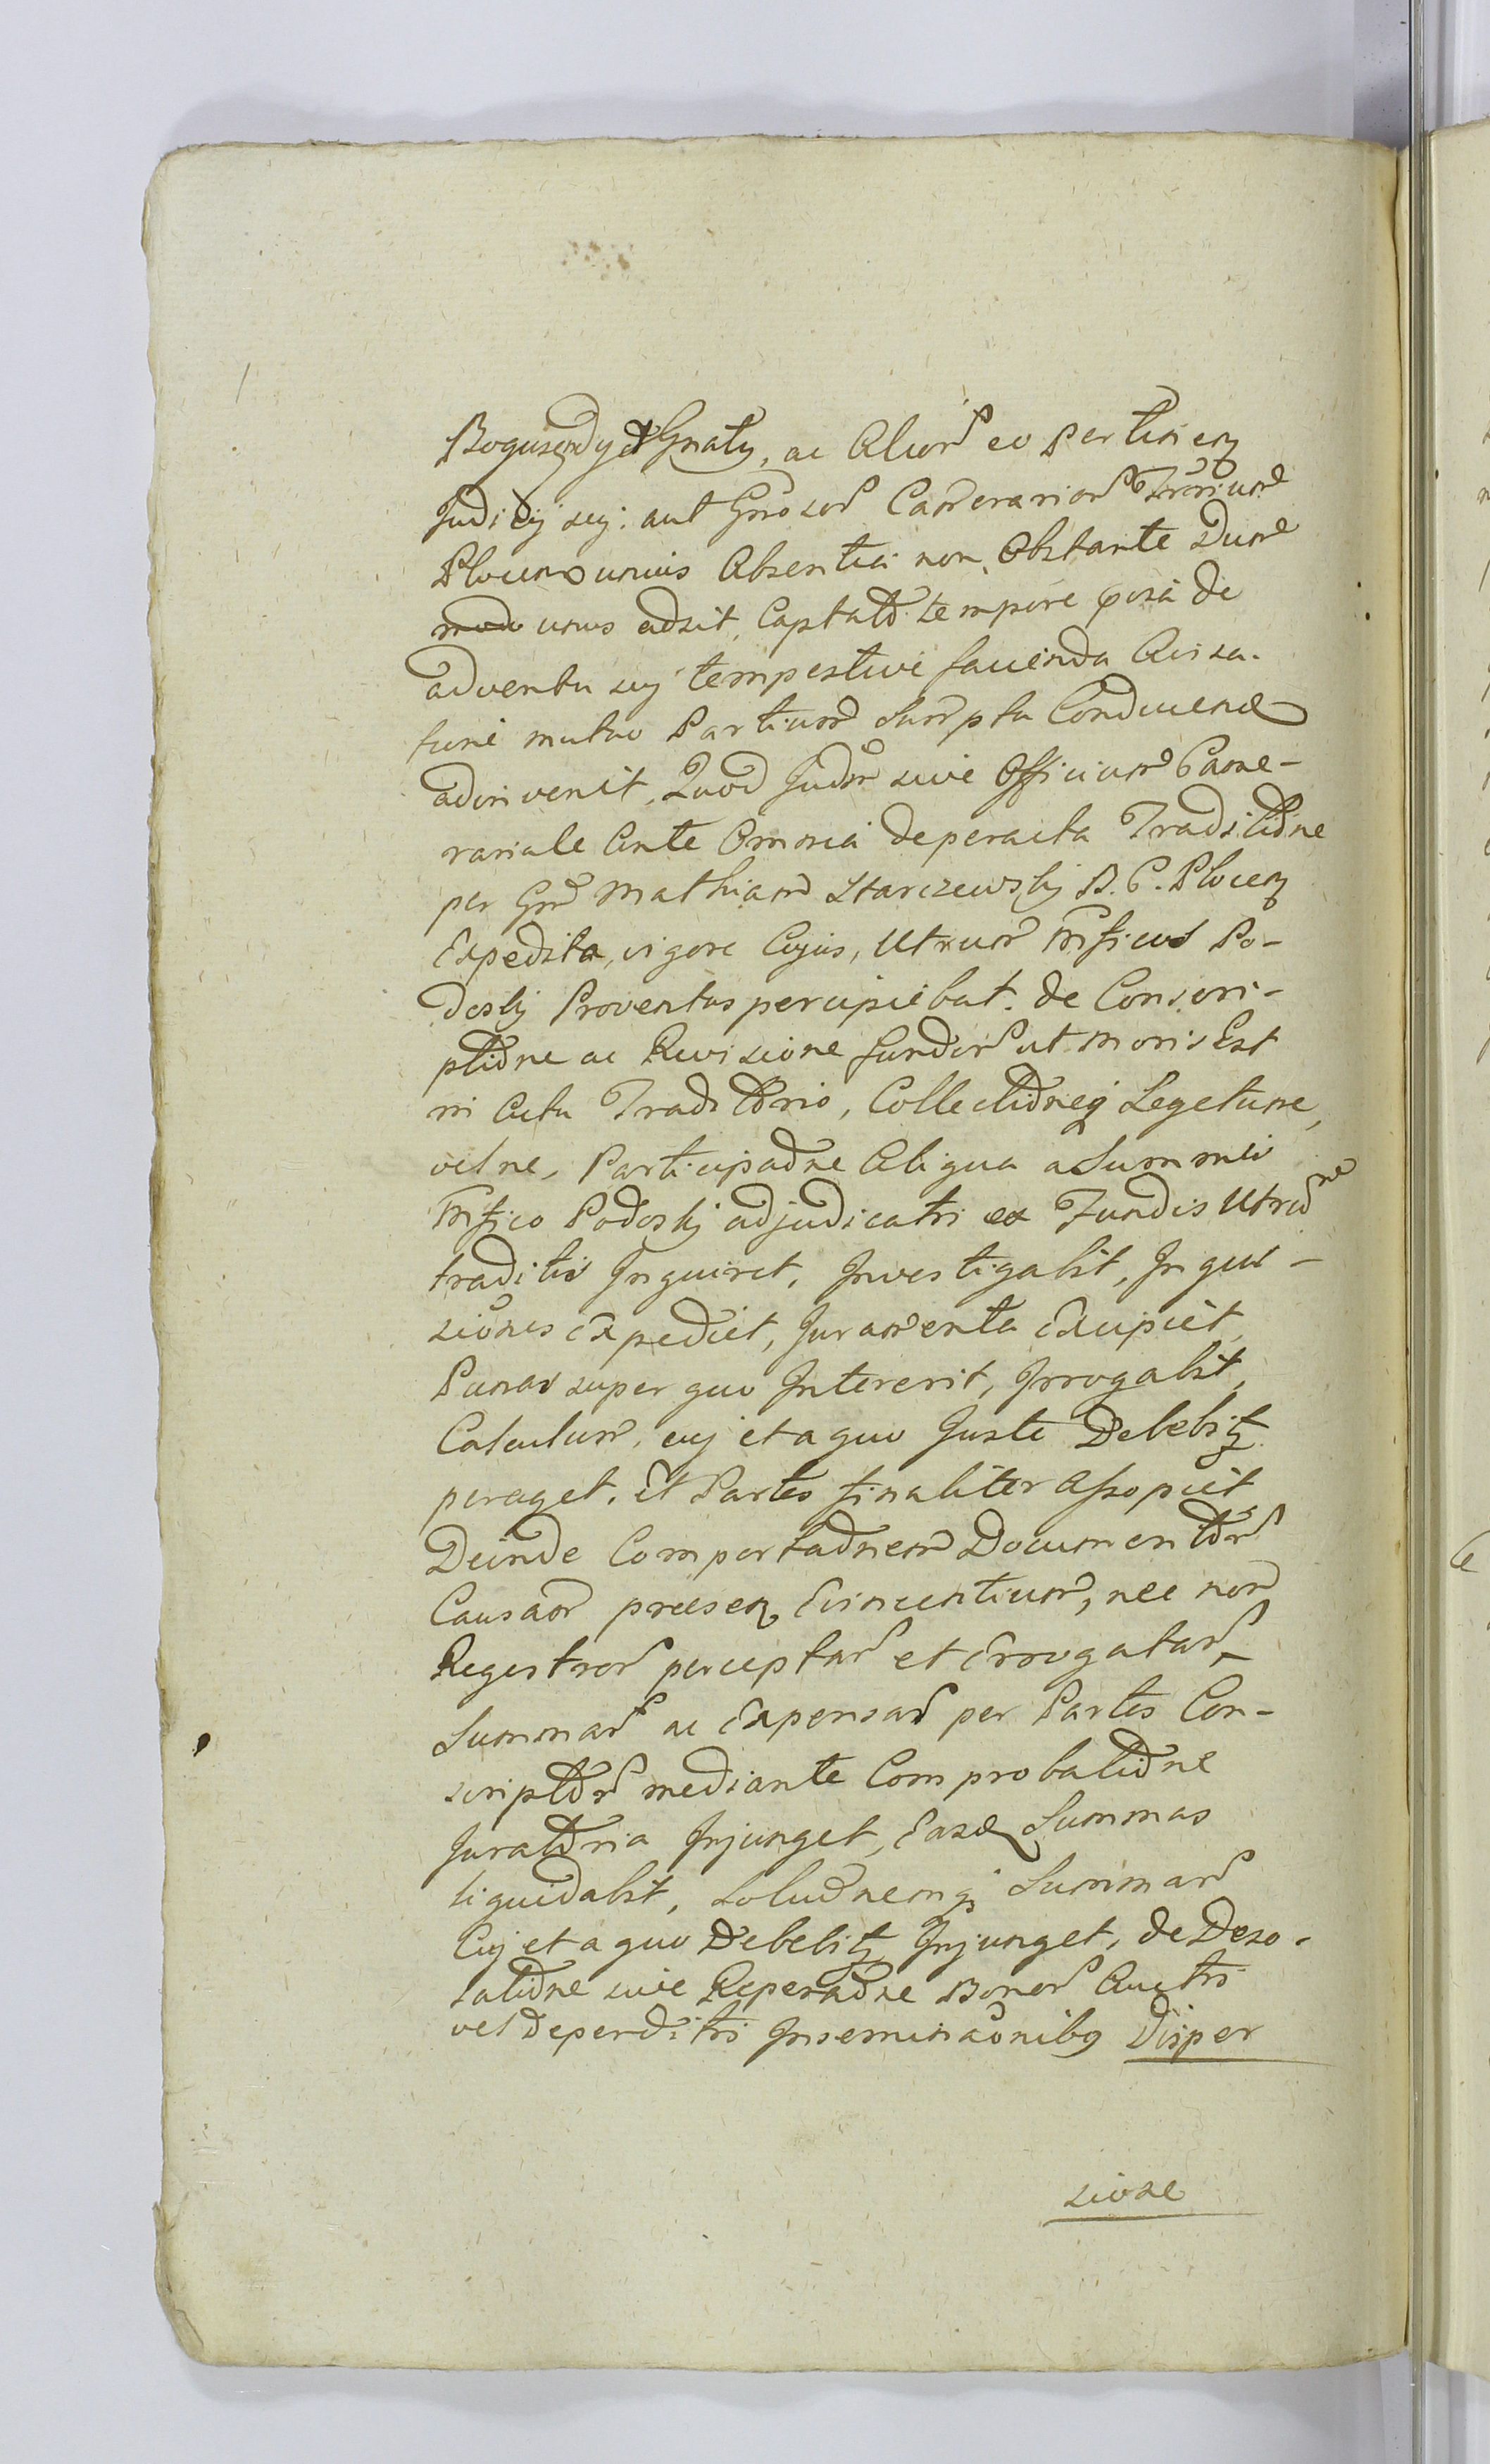 Boguszndy et Gnaty, ac Alior eo Pertinen
Judicij sej: aut Gnosor Camerarior Trarum
Plocen unius Absentia non Obstante Dum
modo unus adsit, Captato tempore posa de
adventu suj tempestive facienda Avisa-
tione mutuo Partium Sumptu Conducend
adinvenit. Quod Judm sive Officium Came-
rariale Ante Omnia de peracta Traditione
per Gm Mathiam Starczewskj B. C. Plocen
Expedita, vigore Cujus, Utrum Mficus Po-
doskj Proventus percipiebat. de Conscri-
ptione ac Revisione fundor ut Moris Est
in Actu Traditorio, Collectioneq Legetime,
vel ne, Participaone Aliqua a Summis
Mfico Podoskj adjudicatis ex Fundis Utrum
traditis Inquiret, Investigabit, Inqui-
siones Expediet, Juramenta Excipiet,
Pænas super quo Intererit, Irrogabit,
Calculum, cuj et a quo Juste Debebitz
peraget, Et Partes finaliter Assopiet
Deinde Comportaonem Documentor
Causam præsen Evincentium, nec non
Registror perceptar et Errogatar
Summar ac Expensar per Partes Con-
scriptor mediante Comprobatione
Juratoria Injunget, Easq Summas
liquidabit, Soluonemq Summar
Cuj et a quo Debebitz Injunget, de Deso-
latione sive Reperaone Bonor Auctis
vel deperditis Inseminaonibg Disper
sione